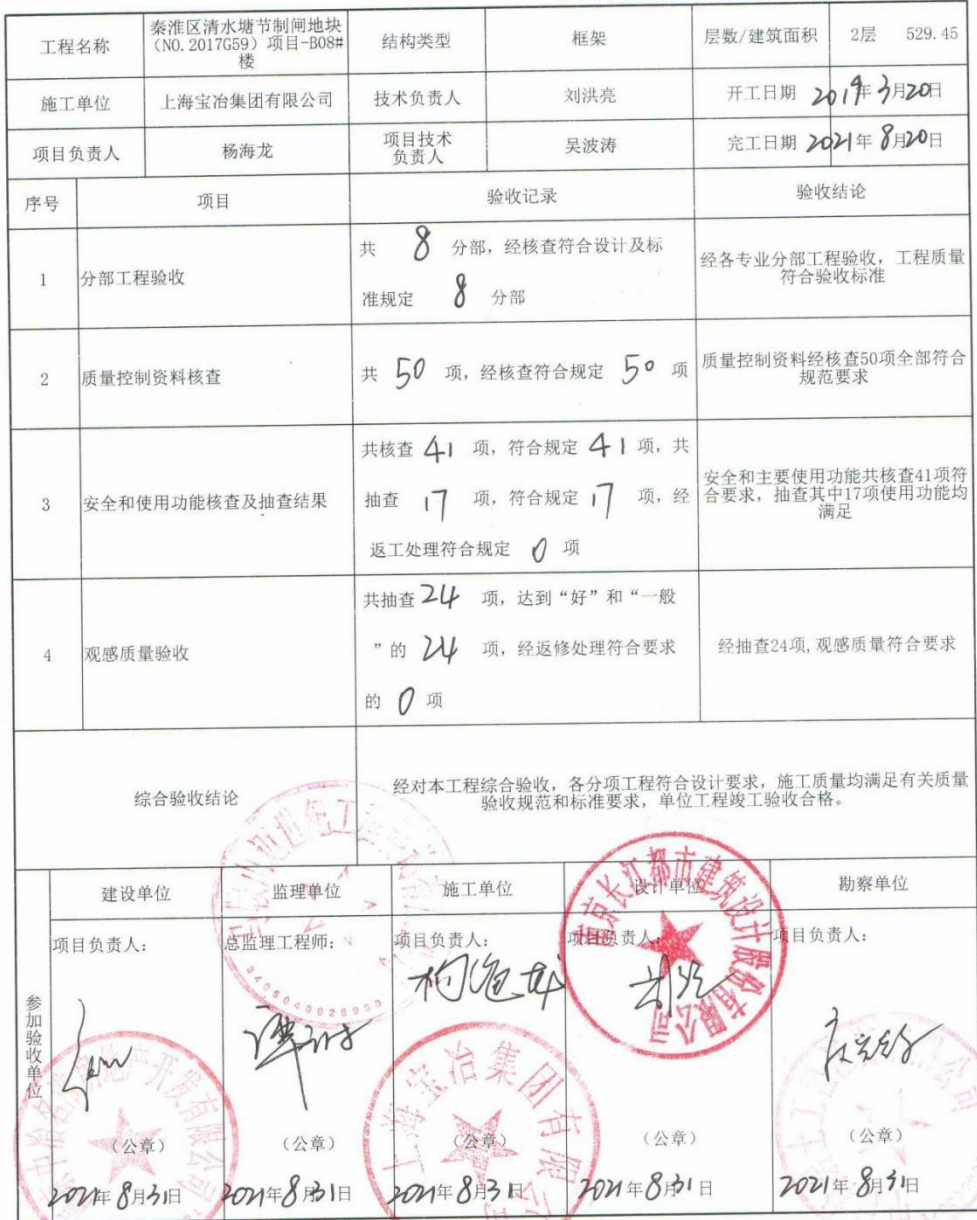 工程名称
秦淮区清水塘节制闸地块
（NO.2017G59）项目-B08#
楼
结构类型
框架
层数/建筑面积
2层 529.45
施工单位
上海宝冶集团有限公司
技术负责人
刘洪亮
开工日期 2019年3月20日
项目负责人
杨海龙
项目技术
负责人
吴波涛
完工日期 2021年8月20日
序号
项目
验收记录
验收结论
1
分部工程验收
共 8 分部，经核查符合设计及标
准规定 8 分部
经各专业分部工程验收，工程质量
符合验收标准
2
质量控制资料核查
共 50 项，经核查符合规定 50 项
质量控制资料经核查50项全部符合
规范要求
3
安全和使用功能核查及抽查结果
共核查 41 项，符合规定 41 项，共
抽查 17 项，符合规定 17 项，经
返工处理符合规定 0 项
安全和主要使用功能共核查41项符
合要求，抽查其中17项使用功能均
满足
4
观感质量验收
共抽查 24 项，达到“好”和“一般
”的 24 项，经返修处理符合要求
的 0 项
经抽查24项,观感质量符合要求
综合验收结论
经对本工程综合验收，各分项工程符合设计要求，施工质量均满足有关质量
验收规范和标准要求，单位工程竣工验收合格。
参加验收单位
建设单位
监理单位
施工单位
设计单位
勘察单位
项目负责人：
总监理工程师：
项目负责人：
项目负责人：
项目负责人：
南京长江都市建筑设计股份有限公司
上海宝冶集团有限公
（公章）
（公章）
（公章）
（公章）
（公章）
2021年8月31日
2021年8月31日
2021年8月31日
2021年8月31日
2021年8月31日